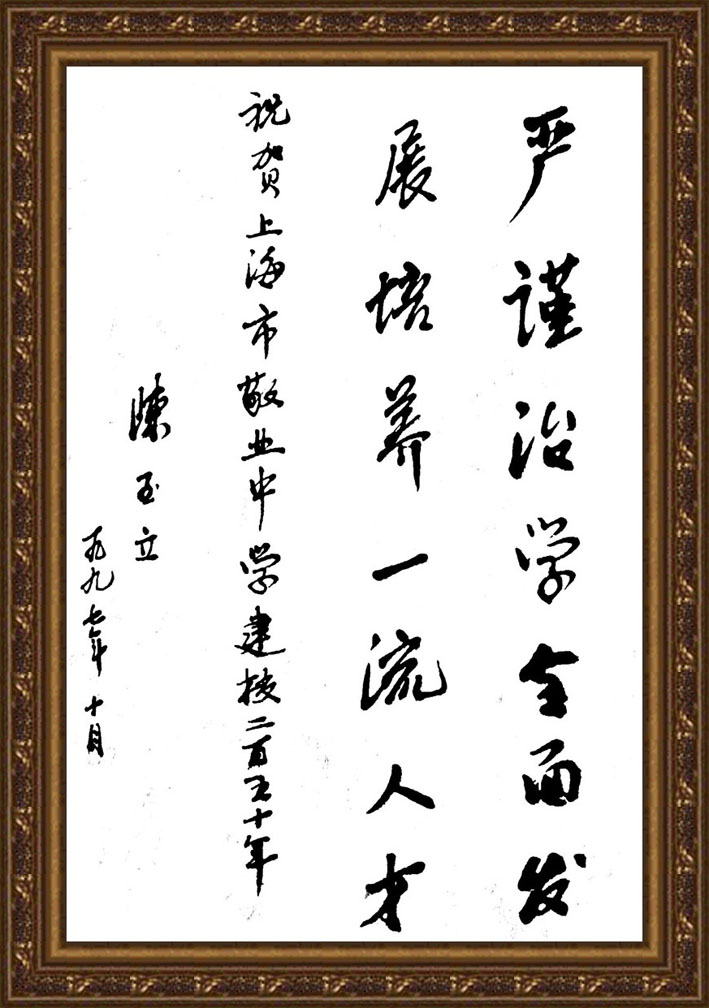 严谨治学全面发
展培养一流人才
祝贺上海市敬业中学建校二百五十年
陈至立
一九九七年十月